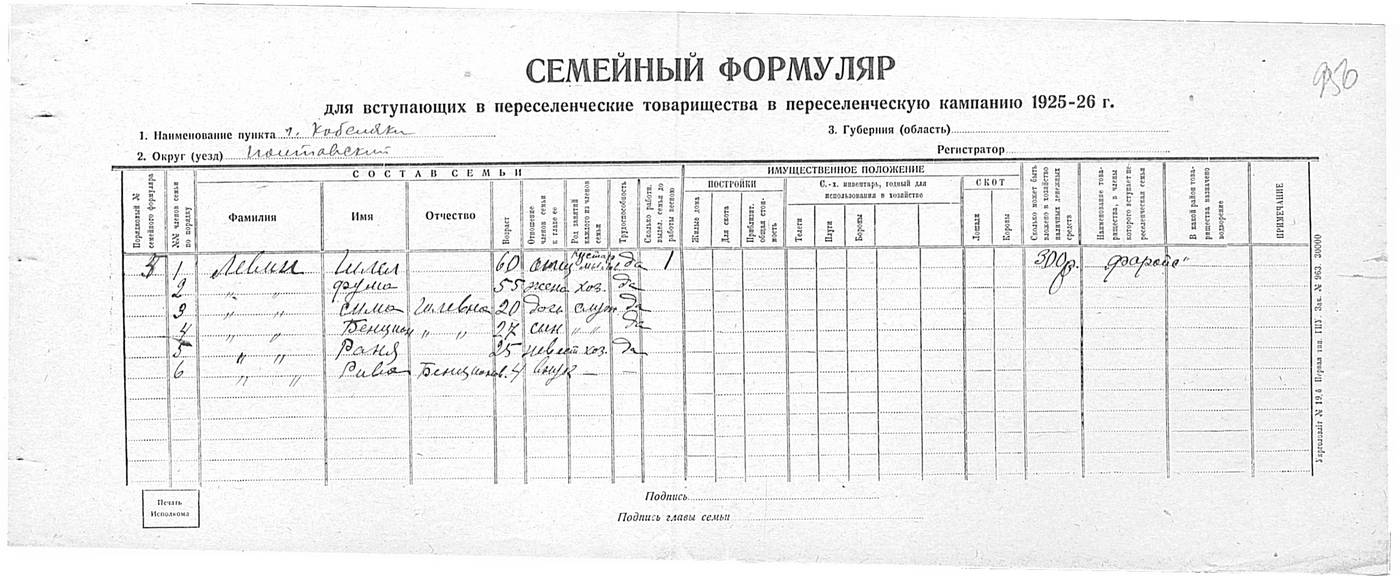 СЕМЕЙНЫЙ ФОРМУЛЯР
936
для вступающих в переселенческие товарищества в переселенческую кампанию 1925-26 г.
1. Наименование пункта г. Кобеляки
3. Губерния (область)
2. Округ (уезд) Полтавский
Регистратор
СОСТАВ СЕМЬИ
ИМУЩЕСТВЕННОЕ ПОЛОЖЕНИЕ
Порядковый № семейного формуляра
№№ членов семьи по порядку
Фамилия
Имя
Отчество
Возраст
Отношение членов семьи к главе ее
Род занятий каждого из членов семьи
Трудоспособность
Сколько работн. выдел. семья до работы весною
ПОСТРОЙКИ
Жилые дома
Для скота
Приблизит. общая стоимость
С.-х. инвентарь, годный для использования в хозяйстве
Телеги
Плуги
Бороны
СКОТ
Лошади
Коровы
Сколько может быть вложено в хозяйство наличных денежных средств
Наименование товарищества, в члены которого вступает переселенческая семья
В какой район товарищества назначено водворение
ПРИМЕЧАНИЕ
1 Левин Шлел 60 отец да 1 300р.
2 " " Фума 55 жена хоз. да
3 " " Сима Шлевна 20 дочь служ. да
4 " " Бенцион " " 27 сын " " да
5 " " Раня 25 невест хоз. да
6 " " Рива Бенционов. 4 внук — —
Печать
Исполкома
Подпись
Подпись главы семьи
Укрголовліт № 19,6 Перша тип. ГПУ. Зак. № 963. 30000